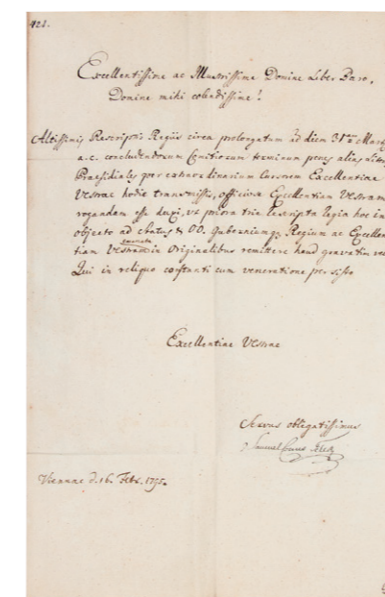 422.
Excellentissime ac Illustrissime Domine Liber Baro,
Domine mihi colendissime!
Altissimis Rescriptis Regiis circa prolongatum ad diem 31am Martii
a.c. concludendorum Comitiorum terminum penes alias
Praesidiales per extraordinarium Cursorem Excellentiae
Vestrae hodie transmissis, officiose Excellentiam Vestram
rogandam esse duxi, ut priora tria rescripta regia hoc in
objecto ad Status & OO. Guberniumq Regium ac Excellen
tiam Vestram in Originalibus remittere haud gravetur
Qui in reliquo constanti cum veneratione persisto
Excellentiae Vestrae
Servus obligatissimus
Samuel Comes Teleki
Viennae d. 16. Febr. 1795.